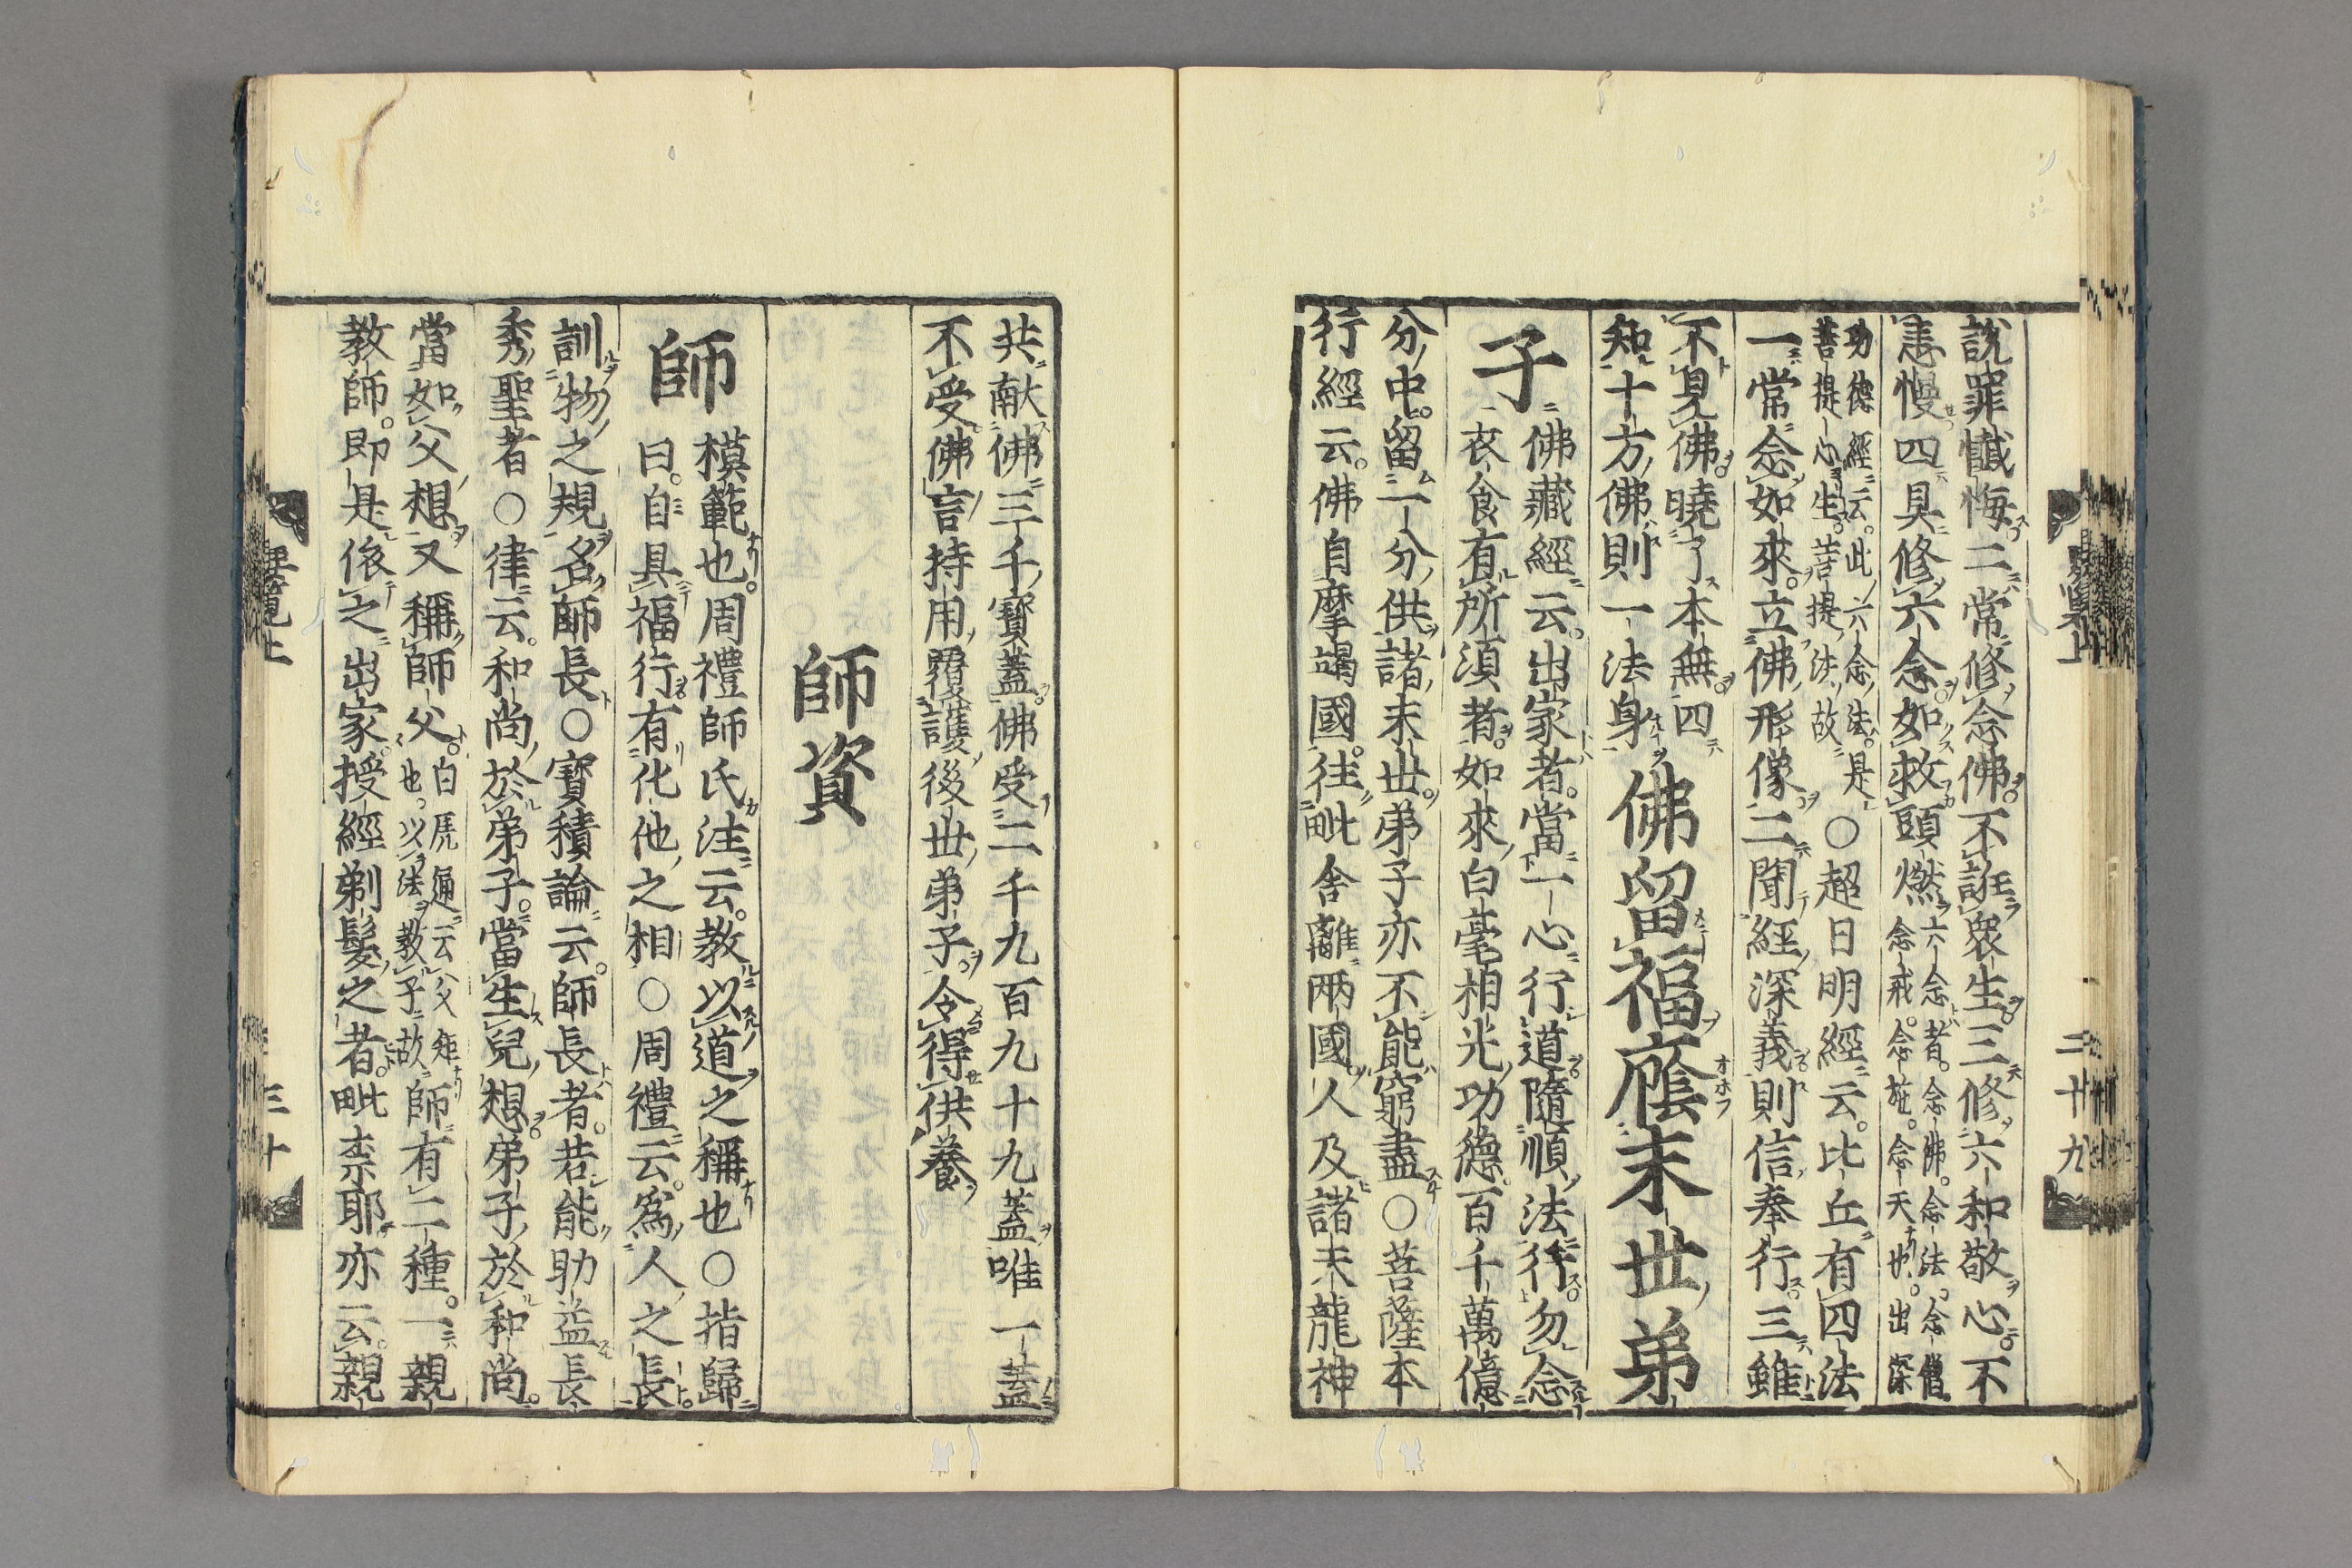 說罪懺悔二常修念佛不誑衆生三修六和敬心不
恚慢四具修六念如救頭燃六念者念佛念法念僧
念戒念施念天也出深
功德經云此六念法是
菩提心生菩提法故○超日明經云比丘有四法
一常念如來立佛形像二聞經深義則信奉行三雖
不見佛曉了本無四
知十方佛則一法身佛留福䕃末世弟
子佛藏經云出家者當一心行道隨順法行勿念
衣食有所須者如來白毫相光功德百千萬億
分中留一分供諸末世弟子亦不能窮盡○菩薩本
行經云佛自摩竭國往毗舍離兩國人及諸天龍神
二十九
共献佛三千寶蓋佛受二千九百九十九蓋唯一蓋
不受佛言持用覆護後世弟子令得供養
師資
師模範也周禮師氏注云教以道之稱也○指歸
曰自具福行有化他之相○周禮云爲人之長
訓物之規名師長○寶積論云師長者若能助益長
秀聖者○律云和尚於弟子當生兒想弟子於和尚
當如父想又稱師父白虎通云父矩
也以法教子故師有二種一親
教師即是依之出家授經剃髮之者毗柰耶亦云親
三十